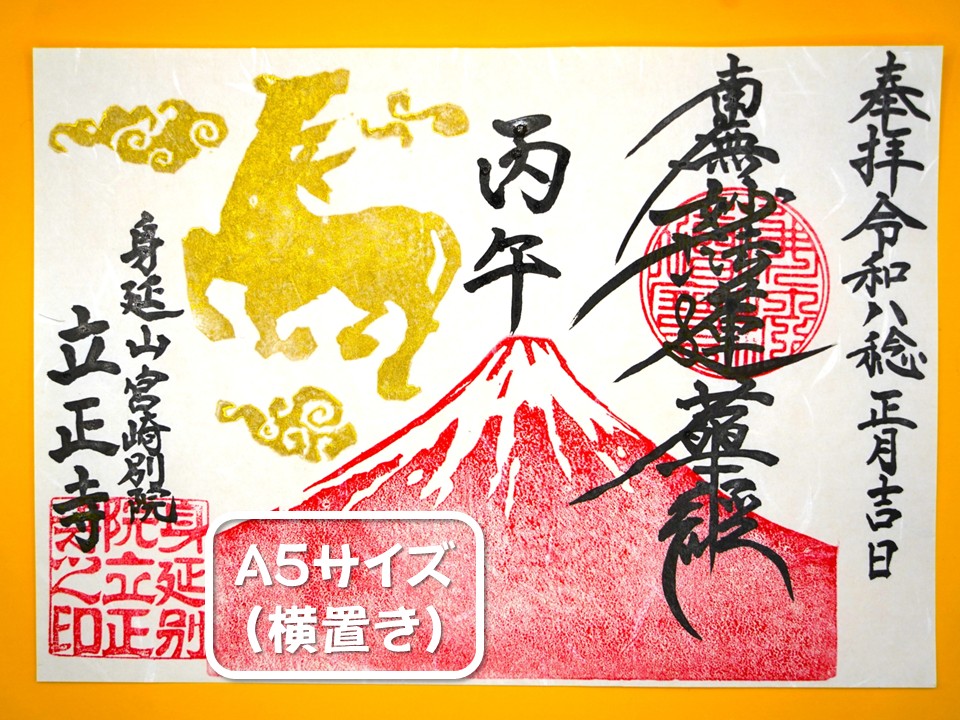 奉拝 令和八稔 正月吉日
南無妙法蓮華経
丙午
身延山宮崎別院
立正寺
身延別
院立正
寺之印
A5サイズ
(横置き)